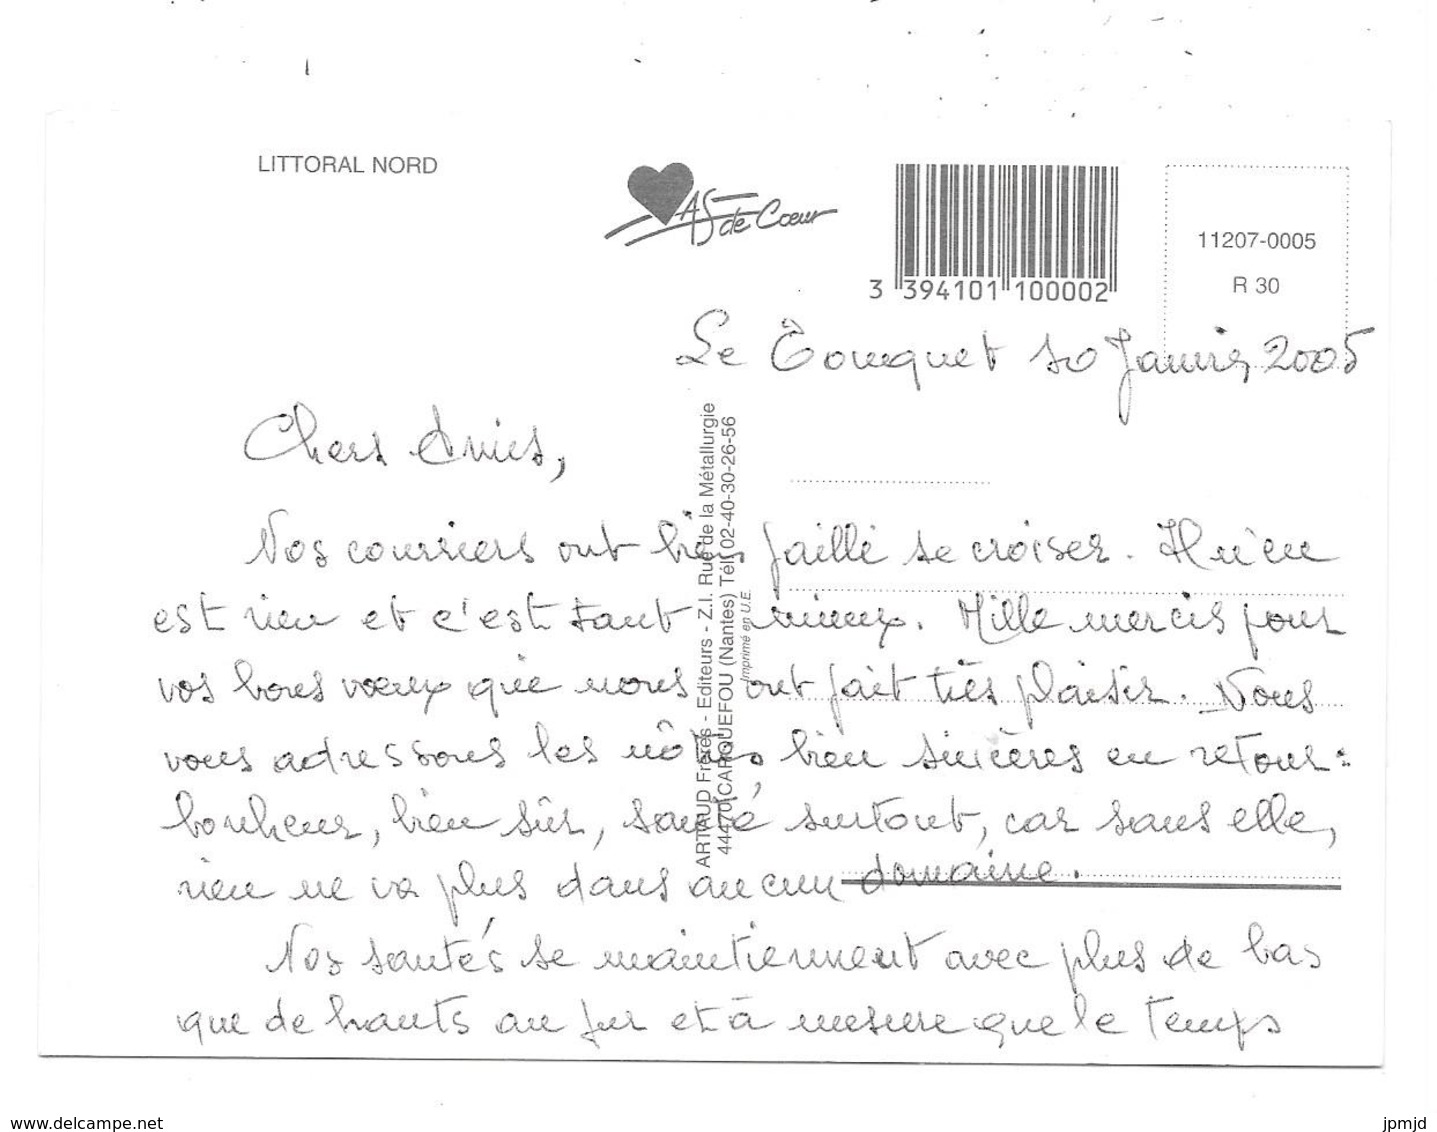 LITTORAL NORD
AS de Cœur
3 394101 100002
11207-0005
R 30
Le Touquet 10 Janvier 2005
ARTAUD Frères - Editeurs - Z.I. Rue de la Métallurgie
44470 CARQUEFOU (Nantes) Tél. 02-40-30-26-56
Imprimé en U.E.
Chers Amis,
Nos courriers ont bien failli se croiser. Il n'en
est rien et c'est tant mieux. Mille mercis pour
vos bons voeux qui nous ont fait très plaisir. Nous
vous adressons les nôtres bien sincères en retour :
bonheur, bien sûr, santé surtout, car sans elle,
rien ne va plus dans aucun domaine.
Nos santés se maintiennent avec plus de bas
que de hauts au fur et à mesure que le temps
www.delcampe.net
jpmjd